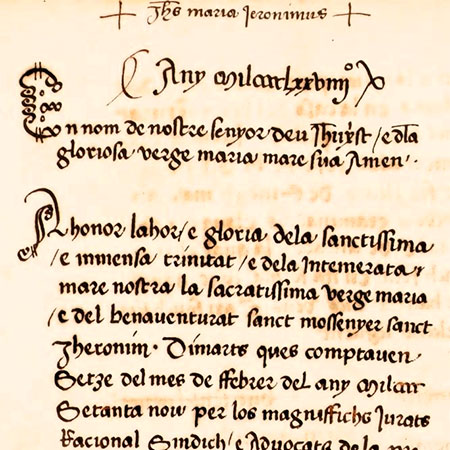 + Jhs maria Jeronimus +
Any Milcccclxxviiijº
En nom de nostre senyor deu Jhuxst / e dla
gloriosa verge maria mare sua Amen ·
A honor lahor / e gloria dela sanctissima
/ e inmensa trinitat / e dela Intemerata
mare nostra la sacratissima verge maria
/ e del benaventurat sanct mossenyer sanct
Jheronim · Dimarts ques comptaven
Setze del mes de ffebrer del any Milcccc
Setanta nou per los magniffichs Jurats
Racional Sindich / e Advocats de la